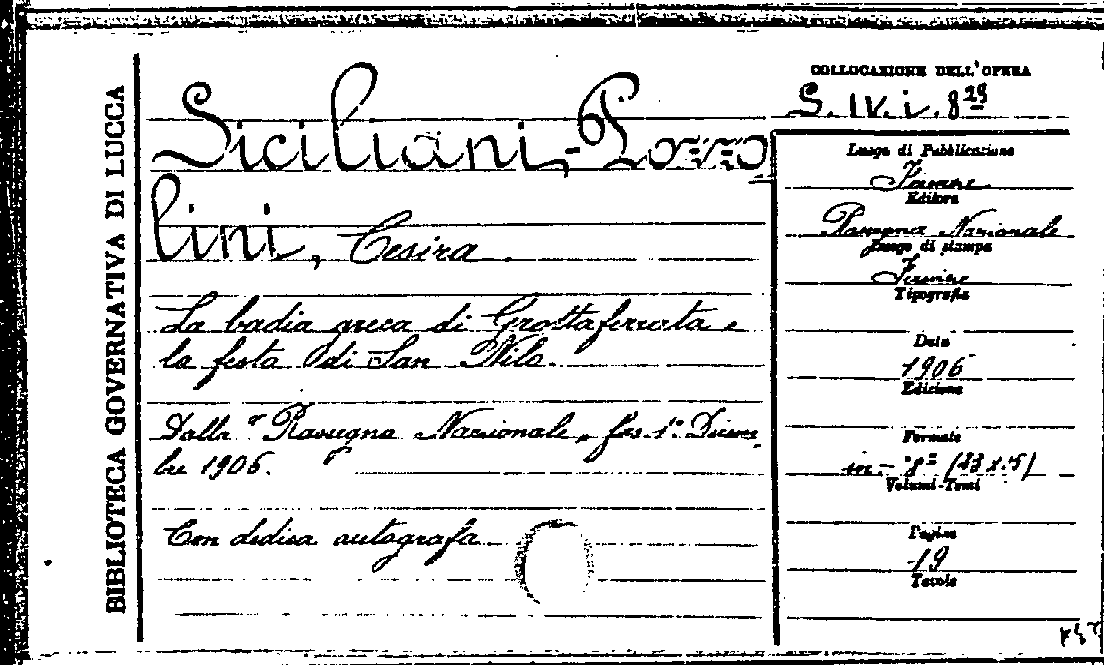 BIBLIOTECA GOVERNATIVA DI LUCCA
Siciliani-Pozzo
lini, Cesira
La badia greca di Grottaferrata e
la festa di San Nilo.
Dalla "Rassegna Nazionale, fas. 1º Dicem
bre 1906.
Con dedica autografa
COLLOCAZIONE DELL'OPERA
S. IV. i. 8
Luogo di Pubblicazione
Firenze
Editore
Rassegna Nazionale
Luogo di stampa
Firenze
Tipografia
Data
1906
Edizione
Formato
in-8º (23x15)
Volumi-Tomi
Pagine
19
Tavole